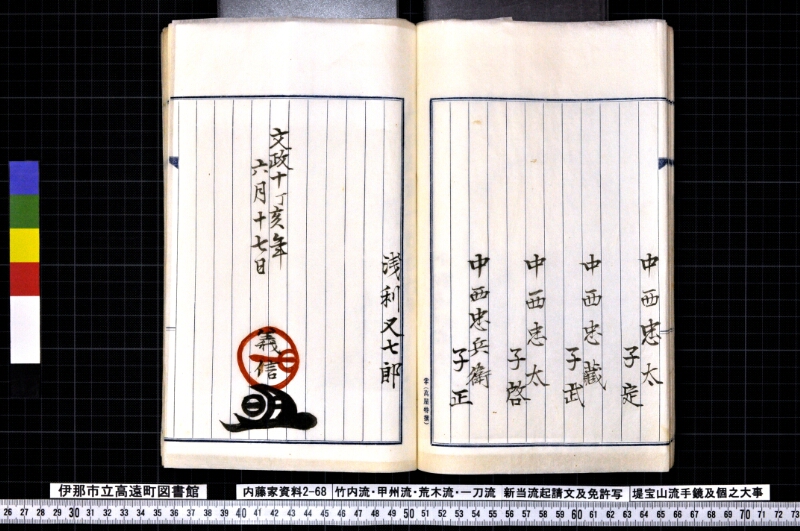 中西忠太
子定
中西忠藏
子武
中西忠太
子啓
中西忠兵衛
子正
浅利又七郎
文政十丁亥年
六月十七日
義信
伊那市立高遠町図書館
内藤家資料2-68
竹内流・甲州流・荒木流・一刀流 新当流起請文及免許写
堤宝山流手鏡及個之大事
26 27 28 29 30 31 32 33 34 35 36 37 38 39 40 41 42 43 44 45 46 47 48 49 50 51 52 53 54 55 56 57 58 59 60 61 62 63 64 65 66 67 68 69 70 71 72 73